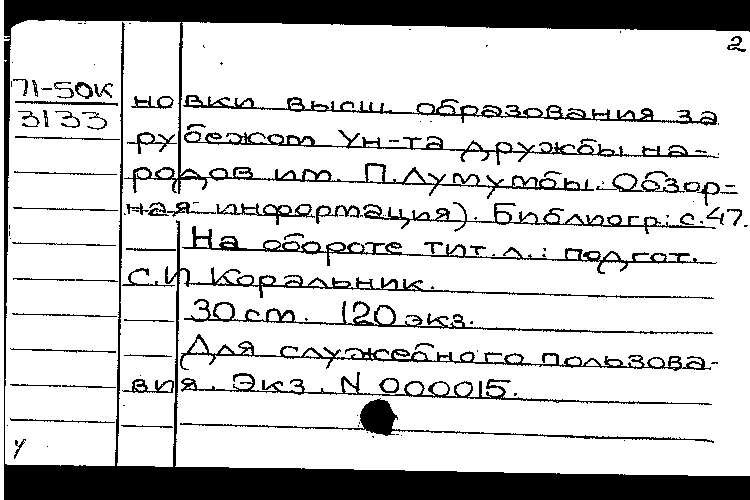 2
71-50к
3133
новки высш. образования за
рубежом Ун-та дружбы на-
родов им. П. Лумумбы. Обзор-
ная информация). Библиогр.: с. 47.
На обороте тит. л.: подгот.
С.И Коральник.
30 см. 120 экз.
Для служебного пользова-
вия. Экз. N 000015.